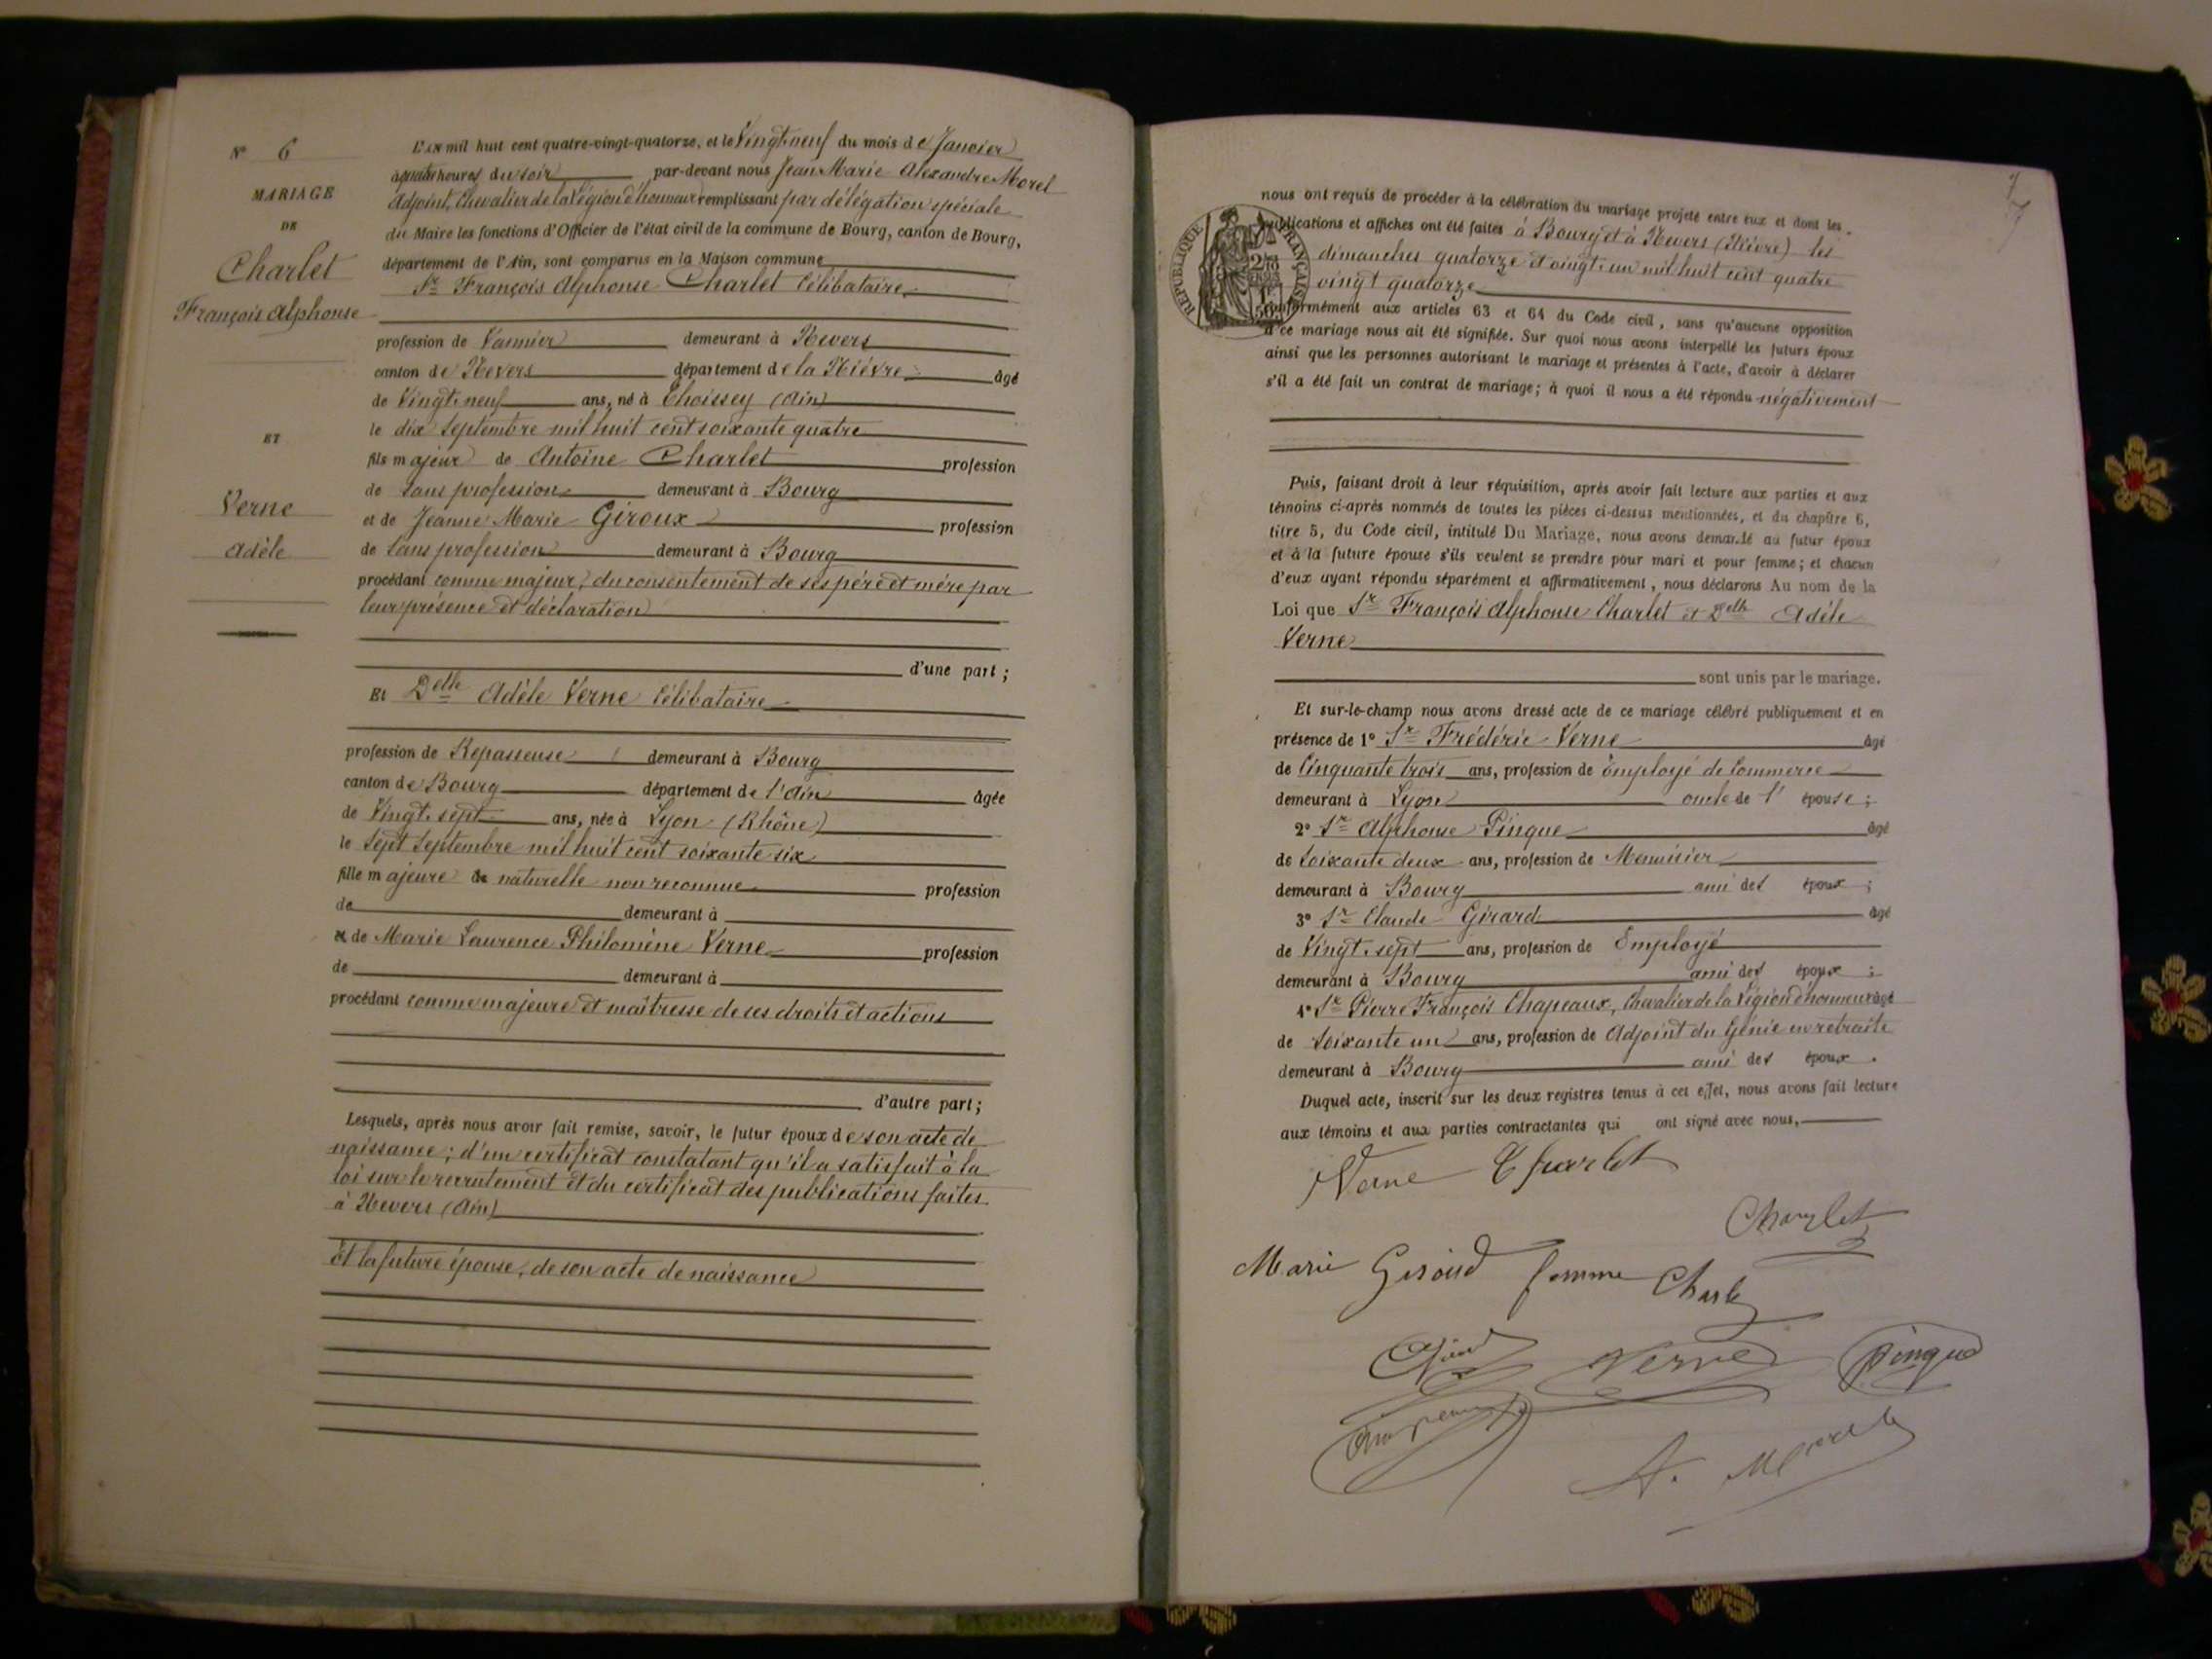 N° 6
MARIAGE
DE
Charlet
François Alphonse
ET
Verne
Adèle
L'AN mil huit cent quatre-vingt-quatorze, et le Vingt neuf du mois de Janvier
à quatre heures du soir par-devant nous Jean Marie Alexandre Morel
Adjoint, Chevalier de la Légion d'honneur remplissant par délégation spéciale
du Maire les fonctions d'Officier de l'état civil de la commune de Bourg, canton de Bourg,
département de l'Ain, sont comparus en la Maison commune
Sr François Alphonse Charlet Célibataire,
profession de Vannier demeurant à Nevers
canton de Nevers département de la Nièvre âgé
de Vingt neuf ans, né à Thoissey (Ain)
le dix Septembre mil huit cent soixante quatre
fils majeur de Antoine Charlet profession
de sans profession demeurant à Bourg
et de Jeanne Marie Giroux profession
de sans profession demeurant à Bourg
procédant comme majeur, du consentement de ses père et mère par
leur présence et déclaration
d'une part ;
Et Delle Adèle Verne Célibataire
profession de Repasseuse demeurant à Bourg
canton de Bourg département de l'Ain âgée
de Vingt sept ans, née à Lyon (Rhône)
le Sept Septembre mil huit cent soixante six
fille majeure de naturelle non reconnue profession
de demeurant à
et de Marie Laurence Philomène Verne profession
de demeurant à
procédant comme majeure et maîtresse de ses droits et actions
d'autre part ;
Lesquels, après nous avoir fait remise, savoir, le futur époux de son acte de
naissance ; d'un certificat constatant qu'il a satisfait à la
loi sur le recrutement et du certificat des publications faites
à Nevers (Ain)
Et la future épouse, de son acte de naissance
7
nous ont requis de procéder à la célébration du mariage projeté entre eux et dont les
publications et affiches ont été faites à Bourg et à Nevers (Nièvre) les
dimanches quatorze et vingt un mil huit cent quatre
vingt quatorze
RÉPUBLIQUE FRANÇAISE
conformément aux articles 63 et 64 du Code civil, sans qu'aucune opposition
à ce mariage nous ait été signifiée. Sur quoi nous avons interpellé les futurs époux
ainsi que les personnes autorisant le mariage et présentes à l'acte, d'avoir à déclarer
s'il a été fait un contrat de mariage ; à quoi il nous a été répondu négativement
Puis, faisant droit à leur réquisition, après avoir fait lecture aux parties et aux
témoins ci-après nommés de toutes les pièces ci-dessus mentionnées, et du chapître 6,
titre 5, du Code civil, intitulé Du Mariage, nous avons demandé au futur époux
et à la future épouse s'ils veulent se prendre pour mari et pour femme ; et chacun
d'eux ayant répondu séparément et affirmativement, nous déclarons Au nom de la
Loi que Sr François Alphonse Charlet et Delle Adèle
Verne
sont unis par le mariage.
Et sur-le-champ nous avons dressé acte de ce mariage célébré publiquement et en
présence de 1° Sr Frédéric Verne âgé
de Cinquante trois ans, profession de Employé de Commerce
demeurant à Lyon oncle de l' épouse ;
2° Sr Alphonse Pinque âgé
de soixante deux ans, profession de Menuisier
demeurant à Bourg ami des époux ;
3° Sr Claude Girard âgé
de Vingt sept ans, profession de Employé
demeurant à Bourg ami des époux ;
4° Sr Pierre François Chapeaux, Chevalier de la Légion d'honneur âgé
de soixante un ans, profession de Adjoint du Génie en retraite
demeurant à Bourg ami des époux.
Duquel acte, inscrit sur les deux registres tenus à cet effet, nous avons fait lecture
aux témoins et aux parties contractantes qui ont signé avec nous,
Verne Charlet
Charlet
Marie Giroud femme Charle
Verne Pingue
Chapeaux
A. Morel